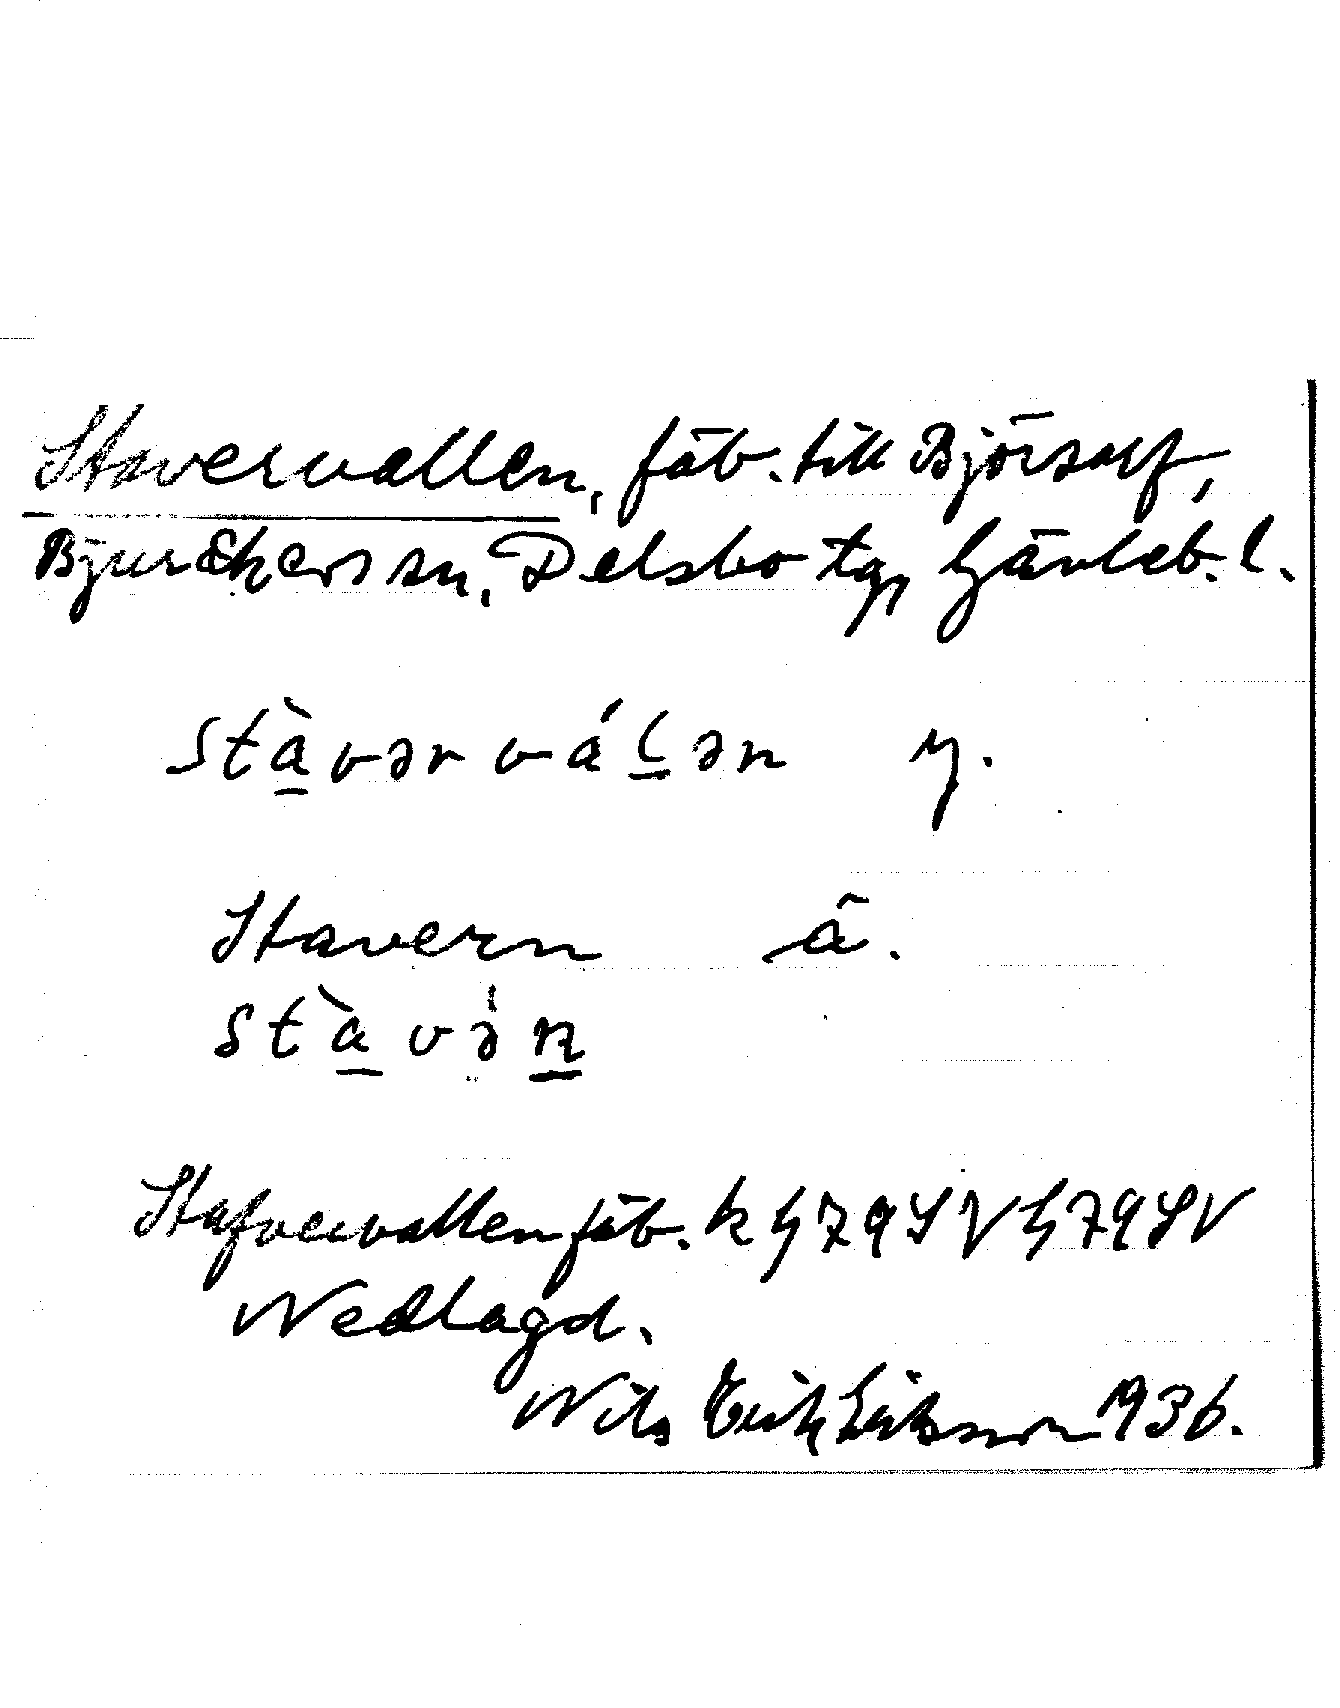 Stavervallen, fäb. till Björsarf,
Bjuråkers sn, Delsbo tg, Gävleb. l.
stàvərváLən y.
Stavern ä.
stàvəṇ
Stafvervallen fäb. k G 79 SV G 79 SV
Nedlagd.
Nils Erik Eriksson 1936.